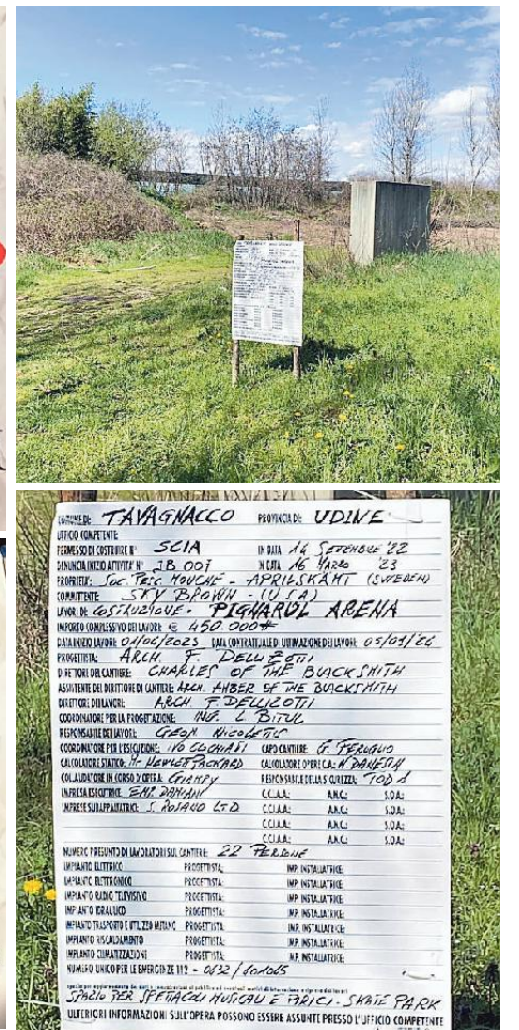 COMUNE DI: TAVAGNACCO PROVINCIA DI: UDINE
UFFICIO COMPETENTE:
PERMESSO DI COSTRUIRE N° SCIA IN DATA 14 SETEMBRE '22
DENUNCIA INIZIO ATTIVITA' N° JB 007 IN DATA 16 MARZO '23
PROPRIETA': SOC. TRIC. MOUCHE - APRILSKÄMT (SWEDEN)
COMMITTENTE: SKY BROWN - (USA)
LAVORI DI: COSTRUZIONE - PIGNARUL ARENA
IMPORTO COMPLESSIVO DEI LAVORI: € 450 000#
DATA INIZIO LAVORI: 01/04/2023 DATA CONTRATTUALE DI ULTIMAZIONE DEI LAVORI: 05/01/24
PROGETTISTA: ARCH. F. DELLIZOTTI
DIRETTORE DEL CANTIERE: CHARLES OF THE BLACKSMITH
ASSISTENTE DEL DIRETTORE DI CANTIERE: ARCH. AMBER OF THE BLACKSMITH
DIRETTORE DI LAVORI: ARCH F. DELLIZOTTI
COORDINATORE PER LA PROGETTAZIONE: ING. L. BITUL
RESPONSABILE DEI LAVORI: GEOM NICOLETIS
COORDINATORE PER L'ESECUZIONE: IVO CUCHIARI CAPO CANTIERE: G. FERUGLIO
CALCOLATORE STATICO: H. HEWLET PACKARD CALCOLATORE OPERE C.A.: N DANESIN
COLLAUDATORE IN CORSO D'OPERA: GRIMPY RESPONSABILE DELLA SICUREZZA: TOD A
IMPRESA ESECUTRICE: EMP. DAMIANI C.C.I.A.A.: A.N.C.: S.O.A.:
IMPRESE SUBAPPALTATRICI: S. ROSANO LTD C.C.I.A.A.: A.N.C.: S.O.A.:
C.C.I.A.A.: A.N.C.: S.O.A.:
C.C.I.A.A.: A.N.C.: S.O.A.:
NUMERO PRESUNTO DI LAVORATORI SUL CANTIERE: 22 PERSONE
IMPIANTO ELETTRICO PROGETTISTA: IMP. INSTALLATRICE:
IMPIANTO ELETTRONICO PROGETTISTA: IMP. INSTALLATRICE:
IMPIANTO RADIO TELEVISIVO PROGETTISTA: IMP. INSTALLATRICE:
IMPIANTO IDRAULICO PROGETTISTA: IMP. INSTALLATRICE:
IMPIANTO TRASPORTO E UTILIZZO METANO PROGETTISTA: IMP. INSTALLATRICE:
IMPIANTO RISCALDAMENTO PROGETTISTA: IMP. INSTALLATRICE:
IMPIANTO CLIMATIZZAZIONE PROGETTISTA: IMP. INSTALLATRICE:
NUMERO UNICO PER LE EMERGENZE 112 - 0432 /
SPAZIO PER SPETTACOLI MUSICALI E PIRICI - SKATE PARK
ULTERIORI INFORMAZIONI SULL'OPERA POSSONO ESSERE ASSUNTE PRESSO L'UFFICIO COMPETENTE